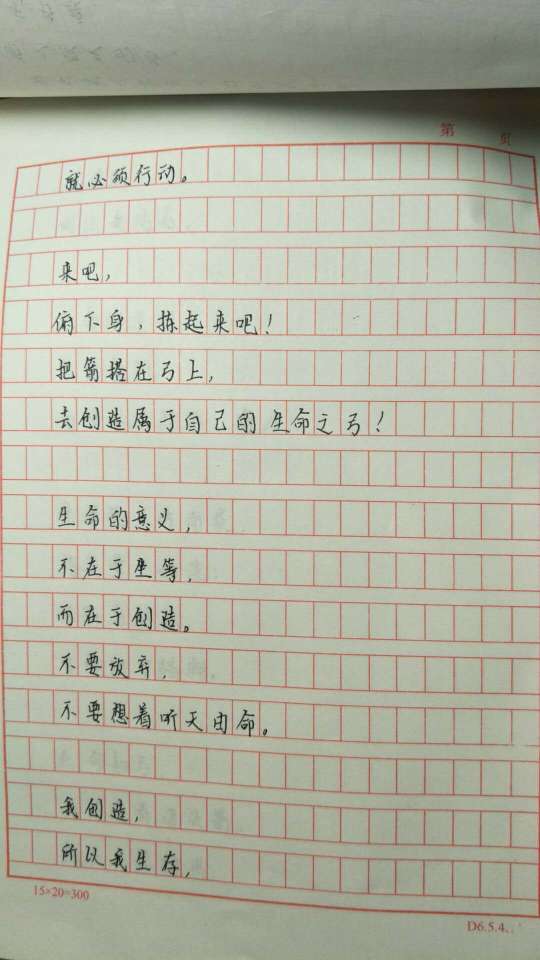 第 页
就必须行动。
来吧,
俯下身,拣起来吧!
把箭搭在弓上,
去创造属于自己的生命之弓!
生命的意义,
不在于坐等,
而在于创造。
不要放弃,
不要想着听天由命。
我创造,
所以我生存,
15×20=300
D6.5.4.